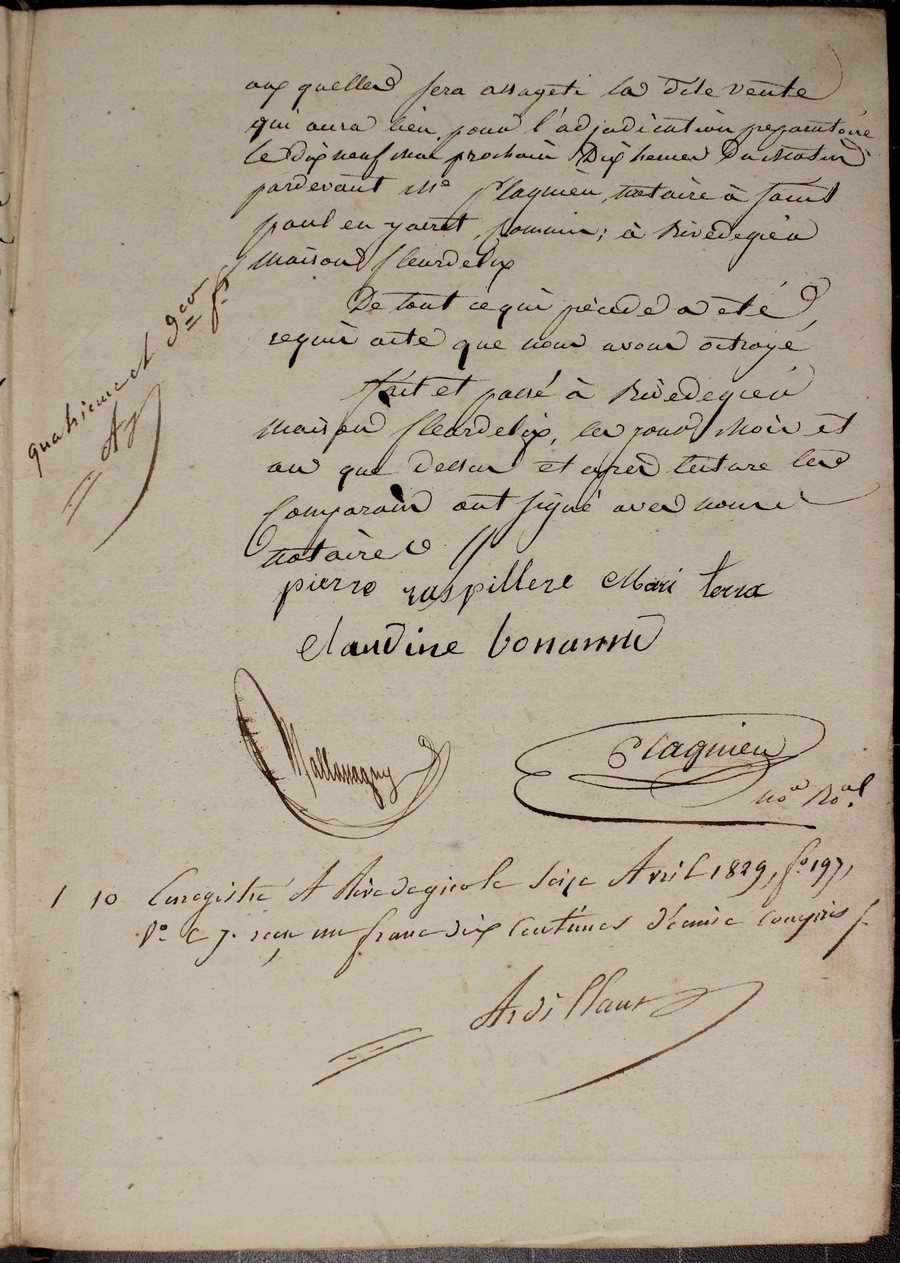 aux quelles sera assugeti la dite vente
qui aura lieu pour l'adjudication preparatoire
le dix neuf mai prochain Dix heures Du Matin
pardevant Me Plagnieu, notaire à saint
paul en jaret, commis; à Rivedegier
maison fleurdelix
De tout cequi précede a été
requis acte que nous avons octroyé
fait et passé à Rivedegier
maison fleurdelix, les jour Mois et
an que dessus et après lecture les
Comparans ont signé avec nous
notaires //
quatrieme et
pierre raspillere Mari terra
Claudine bonnand
Plagnieu
no.re Ro.al
1 10 Enregistré A Rivedegier le Seize Avril 1829, fo. 197,
Vo. C 7. reçu un franc dix Centimes décime compris
Ardillau